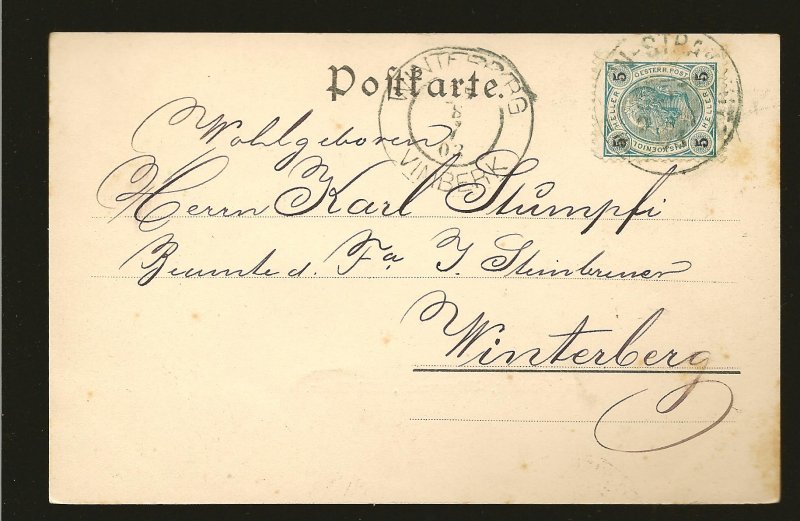 Postkarte.
WINTERBERG
VIMBERK
5 5
OESTERR. POST
HELLER HELLER
5 5
Wohlgeboren
Herrn Karl Stumpfi
Beamte d. Fa J. Steinbrener
Winterberg